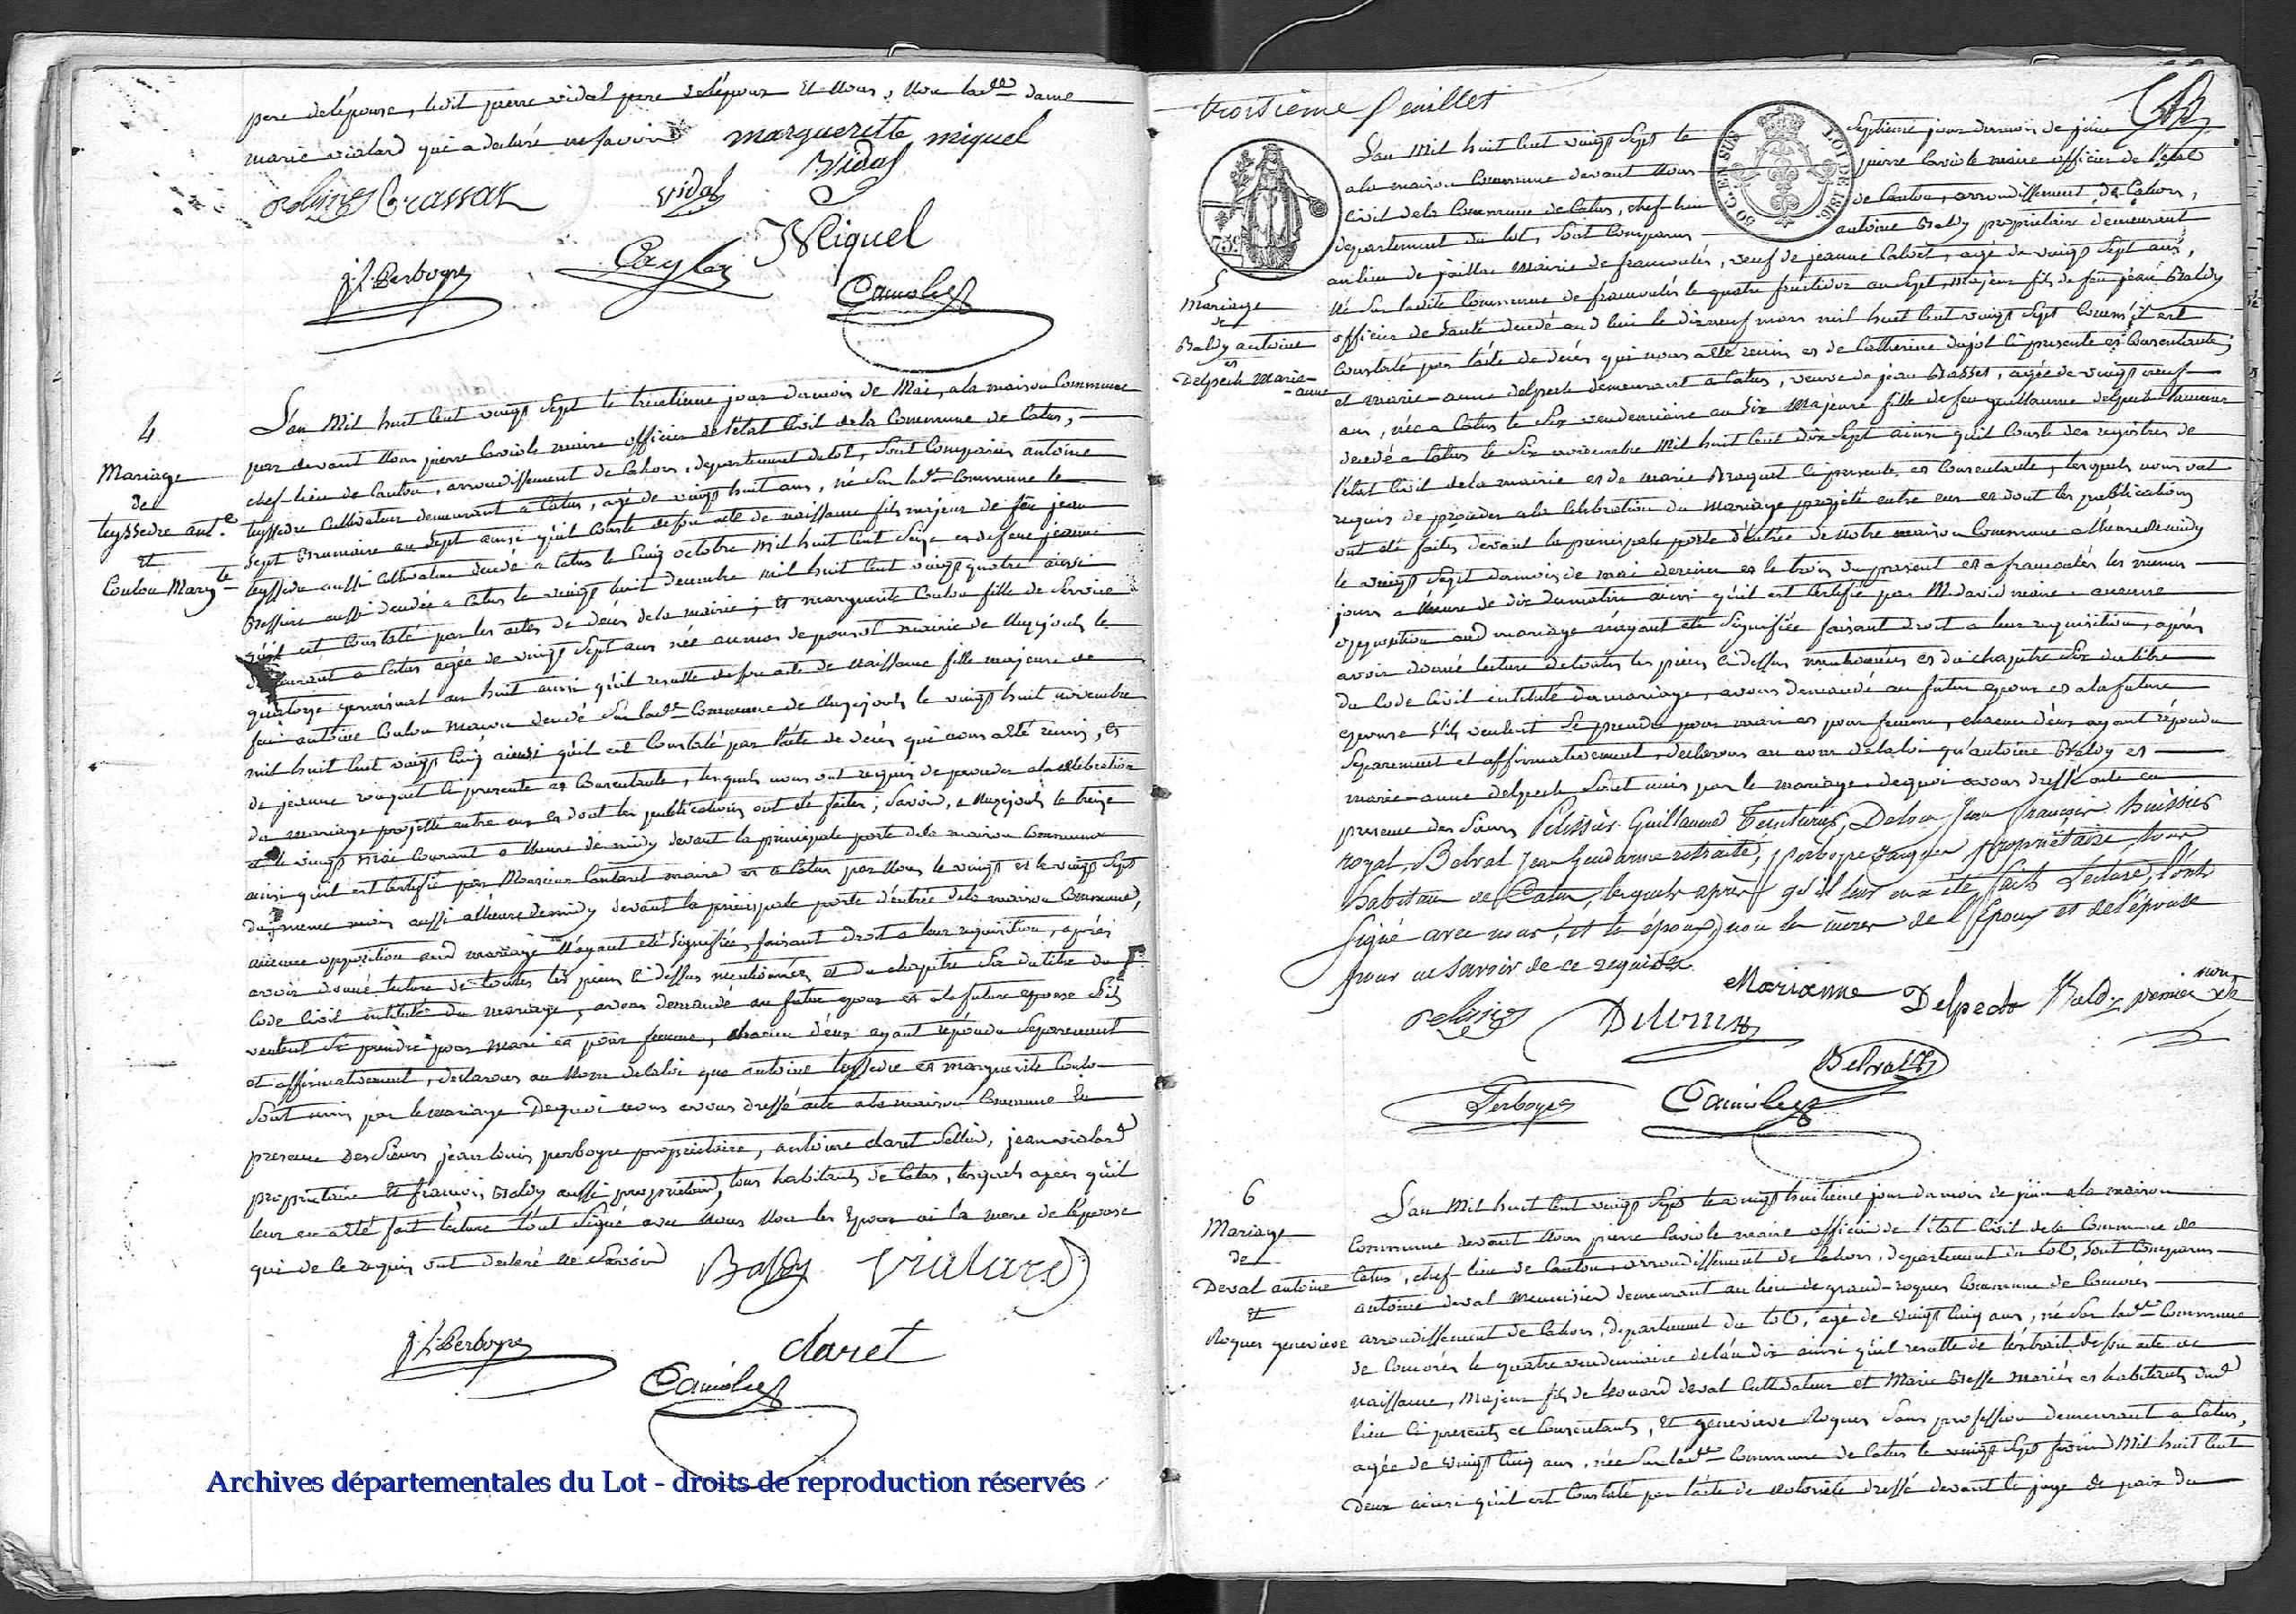 pere de l'épouse, ledit pierre vidal pere de l'époux et Nous, Non lad.e dame
marie vialard qui a declaré ne savoir marguerite miquel
Vidal
vidal
Miquel
j. l. Perboyre
4
Mariage
de
teyssedre ant.e
et
Coulou Marg.te
L'an Mil huit cent vingt sept le trentieme jour du mois de Mai, a la maison Commune
par devant Nous pierre maire officier de l'etat Civil de la Commune de Catus,
chef lieu de Canton, arrondissement de Cahors, departement du lot, sont Comparus antoine
teyssedre Cultivateur demeurant a Catus, agé de vingt huit ans, né sur lad.e Commune le
sept Brumaire an sept ainsi qu'il conste de son acte de naissance fils majeur de feu jean
teyssedre aussi Cultivateur decedé a Catus le cinq octobre Mil huit cent seize et de feue jeanne
Bessiere aussi decedée a Catus le vingt huit decembre mil huit cent vingt quatre ainsi
qu'il est Constaté par les actes de décés de la mairie; et marguerite Coulou fille de service
demeurant a Catus agée de vingt sept ans née au mas de mairie de Nuzejouls le
quatorze germinal an huit ainsi qu'il resulte de son acte de Naissance fille majeure de
feu antoine Coulou Maçon decedé sur lad.e Commune de Nuzejouls le vingt huit novembre
mil huit cent vingt cinq ainsi qu'il est Constaté par l'acte de décés qui nous a eté remis, et
de jeanne ci presente et Consentante, lesquels nous ont requis de proceder a la celebration
du mariage projetté entre eux et dont les publications ont été faites; savoir, a Nuzejouls le treize
et le vingt mai Courant a l'heure de midy devant la principale porte de la maison Commune
ainsi qu'il est Certifié par Monsieur maire et a Catus par Nous le vingt et le vingt sept
du meme mois aussi a l'heure de midy devant la principale porte d'entrée de la maison Commune,
aucune opposition aud mariage N'ayant eté signifiée, faisant droit a leur requisition, aprés
avoir donné lecture de toutes les pieces ci dessus mentionnées et du chapitre six du titre du
Code Civil intitulé du mariage, avons demandé au futur epoux et a la future epouse s'ils
veulent se prendre pour mari et pour femme, chacun d'eux ayant repondu separement
et affirmativement, declarons au Nom de la loi que antoine teyssedre et marguerite Coulou
sont unis par le mariage De quoi nous avons dressé acte a la maison Commune en
presence des sieurs jean louis perboyre proprietaire, antoine claret sellier, jean vialard
proprietaire et francois Baldy aussi proprietaire, tous habitants de Catus, lesquels aprés qu'il
leur en a eté fait lecture l'ont signé avec Nous Non les Epoux ni la mere de l'épouse
qui de ce requis ont declaré ne savoir Baldy Vialard
j. l. Perboyre
claret
Archives départementales du Lot - droits de reproduction réservés
troisième feuillet
5
Mariage
de
Baldy antoine
et
Delpech Marie-
-anne
L'an Mil huit cent vingt sept le septieme jour du mois de juin
a la maison Commune devant Nous pierre maire officier de l'etat
Civil de la Commune de Catus, chef lieu de Canton, arrondissement de Cahors,
departement du lot, sont Comparus antoine Baldy proprietaire demeurant
au lieu de mairie de francoulés, veuf de jeanne Calvet, agé de vingt sept ans,
Né sur ladite Commune de francoulés le quatre fructidor an sept, Majeur fils de feu jean Baldy
officier de santé decedé aud lieu le dix neuf mars mil huit cent vingt sept comme il est
Constaté par l'acte de décés qui nous a eté remis et de Catherine ci presente et Consentante;
et marie-anne delpech demeurant a Catus, veuve de jean Basset, agée de vingt neuf
ans, née a Catus le six vendemiaire an six Majeure fille de feu guillaume delpech
decedé a Catus le six novembre Mil huit cent dix sept ainsi qu'il conste des registres de
l'etat Civil de la mairie et de marie ci presente et Consentante, lesquels nous ont
requis de proceder a la Celebration du Mariage projeté entre eux et dont les publications
ont eté faites devant la principale porte d'entrée de Notre maison Commune a l'heure de midy
le vingt sept du mois de mai dernier et le trois du present et a francoulés les memes
jours a l'heure de dix du matin ainsi qu'il est certifié par M david maire aucune
opposition aud mariage n'ayant eté signifiée faisant droit a leur requisition, aprés
avoir donné lecture de toutes les pieces ci dessus mentionnées et du chapitre six du titre
du Code Civil intitulé du mariage, avons demandé au futur epoux et a la future
epouse s'ils veulent se prendre pour mari et pour femme, chacun d'eux ayant répondu
separement et affirmativement, declarons au nom de la loi qu'antoine Baldy et
marie-anne delpech sont unis par le mariage, de quoi avons dressé acte en
presence des sieurs Pelissié Guillaume Teinturier, Jean françois huissier
royal, Belval Jean Gendarme retraité, perboyre Jacques Propriétaire tous
habitans de Catus, lesquels après qu'il leur en a été fait Lecture, l'ont
signé avec nous, et les époux, non les mères de l'Epoux et de l'épouse
pour ne savoir de ce requises.
Marianne Delpech Baldy
Perboyre
6
Mariage
de
Deval antoine
et
Roques genevieve
L'an Mil huit cent vingt sept le vingt huitieme jour du mois de juin a la maison
Commune devant Nous pierre maire officier de l'etat Civil de la Commune de
Catus, chef lieu de Canton, arrondissement de Cahors, departement du lot, sont Comparus
antoine deval Menuisier demeurant au lieu de grand-roques Commune de
arrondissement de Cahors, departement du lot, agé de vingt cinq ans, né sur lad.e Commune
de le quatre vendemiaire de l'an dix ainsi qu'il resulte de l'extrait de son acte de
naissance, Majeur fils de leonard deval Cultivateur et Marie Besse Mariés et habitants dud
lieu ci presents et Consentants, Et genevieve Roques sans profession demeurant a Catus,
agée de vingt cinq ans, née sur lad.e Commune de Catus le vingt sept Mil huit cent
Deux ainsi qu'il est Constaté par l'acte de notorieté dressé devant le juge de paix du